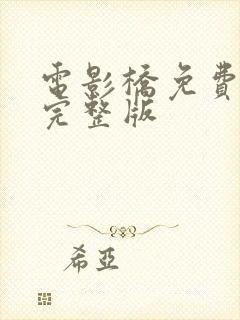 電影橋免費
完整版
希亞